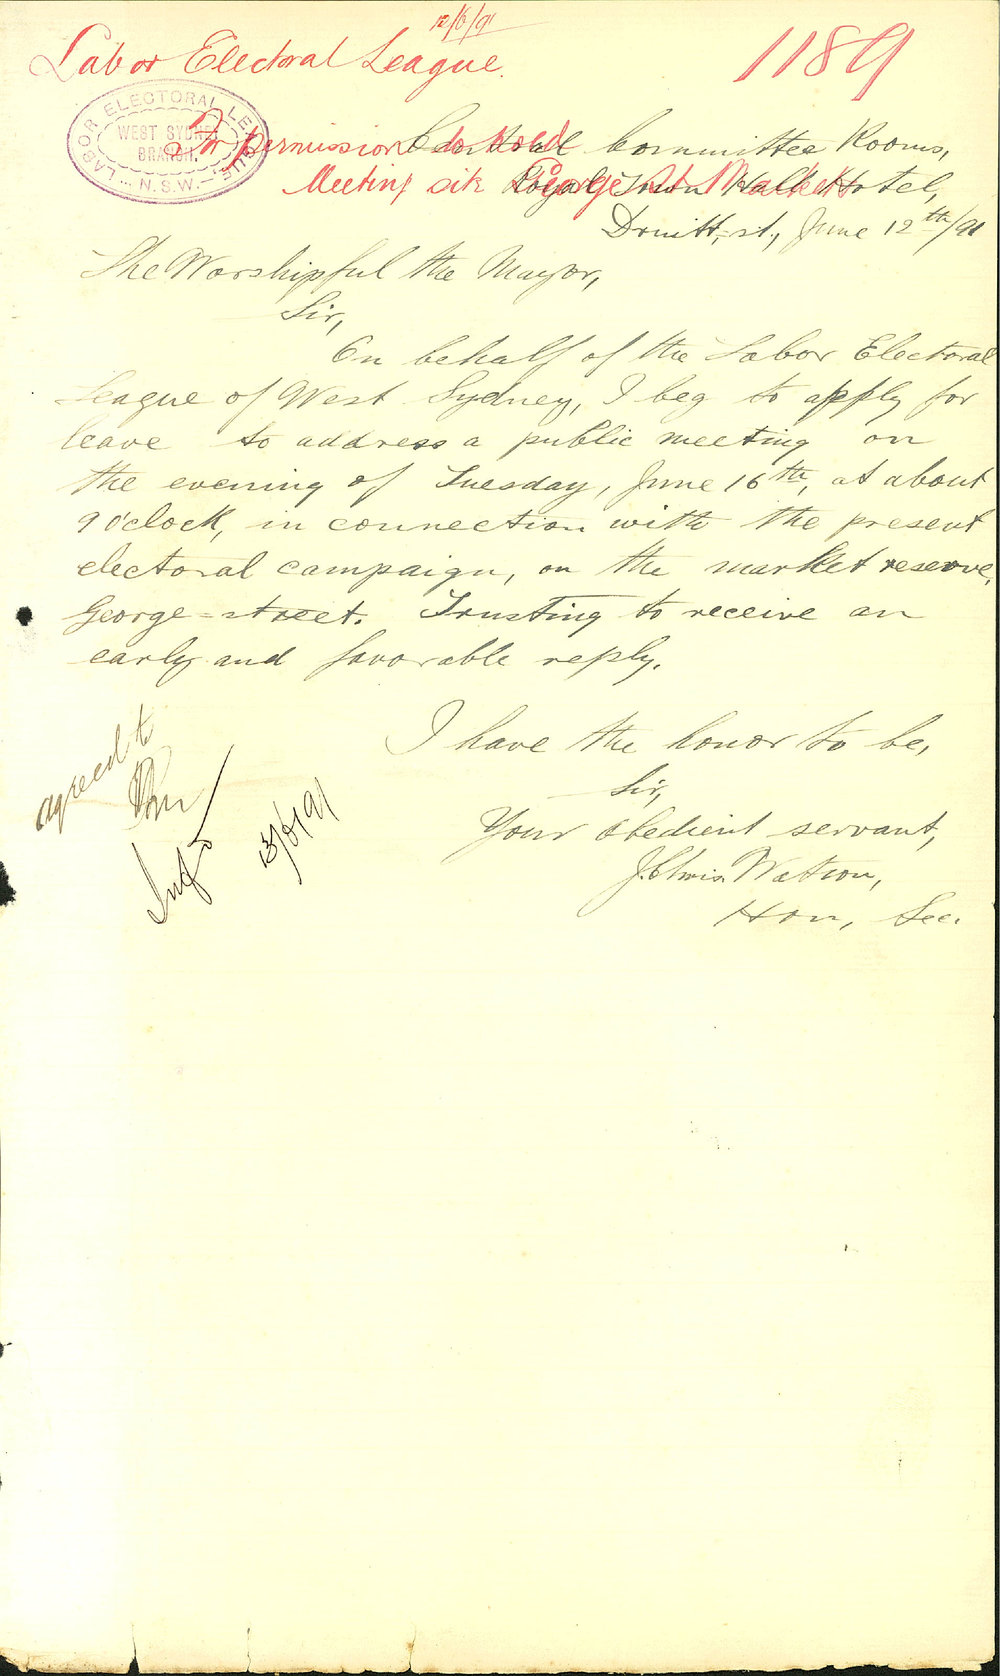 12/6/91
Labor Electoral League.
1189
LABOR ELECTORAL LEAGUE
WEST SYDNEY
BRANCH.
N.S.W.
For permission to hold
Meeting site George St Markets
Central Committee Rooms,
Royal Town Hall Hotel,
Druitt-st., June 12th/91
The Worshipful the Mayor,
Sir,
On behalf of the Labor Electoral
League of West Sydney, I beg to apply for
leave to address a public meeting on
the evening of Tuesday, June 16th, at about
9 o'clock, in connection with the present
electoral campaign, on the market reserve,
George-street. Trusting to receive an
early and favorable reply.
I have the honor to be,
Sir,
Your obedient servant,
J. Chris. Watson,
Hon, Sec.
agreed to
13/6/91